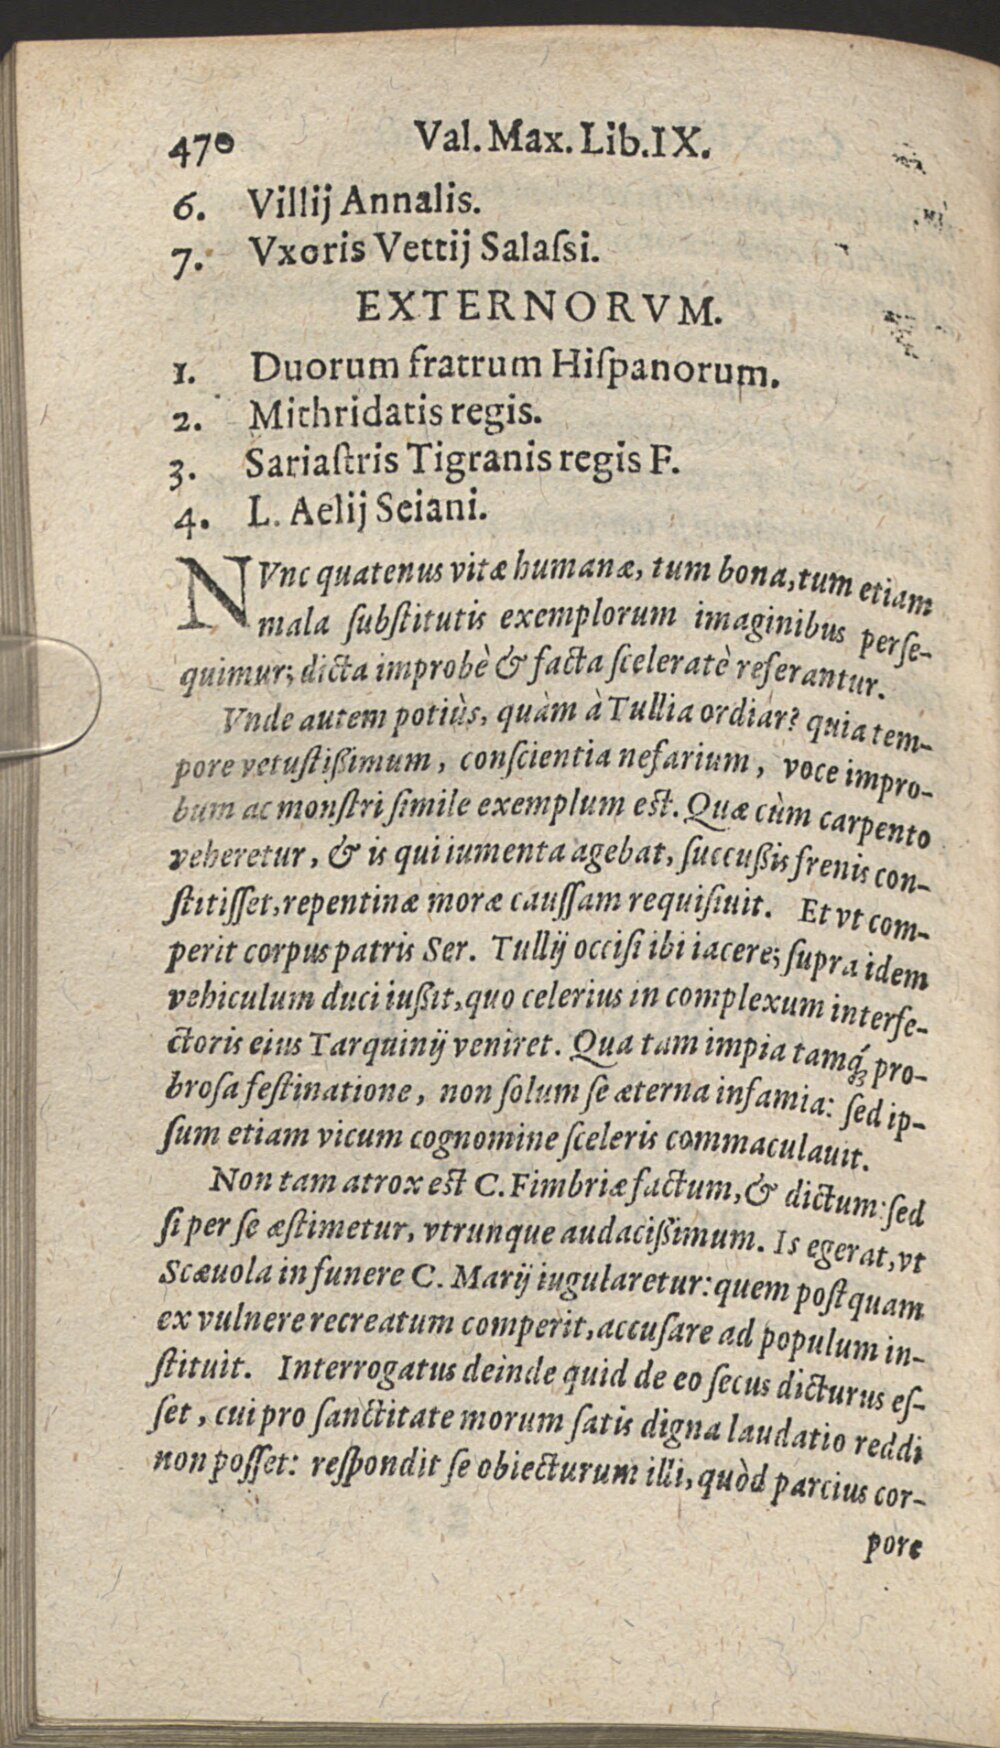 470 Val. Max. Lib. IX.
6. Villij Annalis.
7. Vxoris Vettij Salaſsi.
EXTERNORVM.
1. Duorum fratrum Hiſpanorum.
2. Mithridatis regis.
3. Sariaſtris Tigranis regis F.
4. L. Aelij Seiani.
NVnc quatenus vitæ humanæ, tum bona, tum etiam
mala ſubſtitutis exemplorum imaginibus perſe-
quimur; dicta improbè & facta ſceleratè referantur.
Vnde autem potiùs, quàm à Tullia ordiar? quia tem-
pore vetuſtißimum, conſcientia nefarium, voce impro-
bum ac monſtri ſimile exemplum eſt. Quæ cùm carpento
veheretur, & is qui iumenta agebat, ſuccußis frenis con-
ſtitiſſet, repentinæ moræ cauſſam requiſiuit. Et vt com-
perit corpus patris Ser. Tullij occiſi ibi iacere; ſupra idem
vehiculum duci iußit, quo celerius in complexum interfe-
ctoris eius Tarquinij veniret. Qua tam impia tamq́; pro-
broſa feſtinatione, non ſolum ſe æterna infamia: ſed ip-
ſum etiam vicum cognomine ſceleris commaculauit.
Non tam atrox eſt C. Fimbriæ factum, & dictum: ſed
ſi per ſe æſtimetur, vtrunque audacißimum. Is egerat, vt
Scæuola in funere C. Marij iugularetur: quem poſtquam
ex vulnere recreatum comperit, accuſare ad populum in-
ſtituit. Interrogatus deinde quid de eo ſecus dicturus eſ-
ſet, cui pro ſanctitate morum ſatis digna laudatio reddi
non poſſet: reſpondit ſe obiecturum illi, quòd parcius cor-
pore